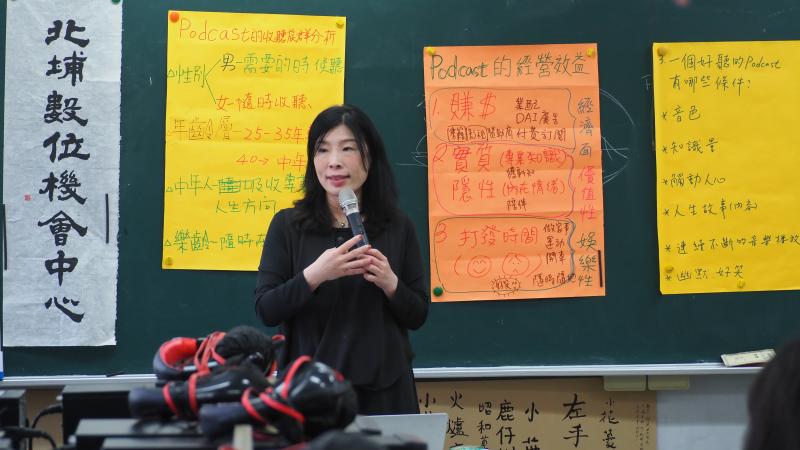 北埔數位機會中心
Podcast的收聽族群分析
△性別
男-需要的時候聽
女-隨時收聽、
年齡層-25-35年
40→中年
△中年人-
人生方向
△樂齡~隨時
Podcast的經營效益
1. 賺$
業配
DAI廣告
付費訂閱
2. 實質(專業知識)
隱性
陪伴
3 打發時間
做家事
運動
開車
隨時隨地
經濟面
價值性
娛樂性
3.一個好聽的Podcast
有哪些條件?
*音色
*知識量
*觸動人心
*人生故事內容
*連續不斷的音樂播放
*幽默 好笑
小花蔓
左手
小
鹿仔
昭和
火爐